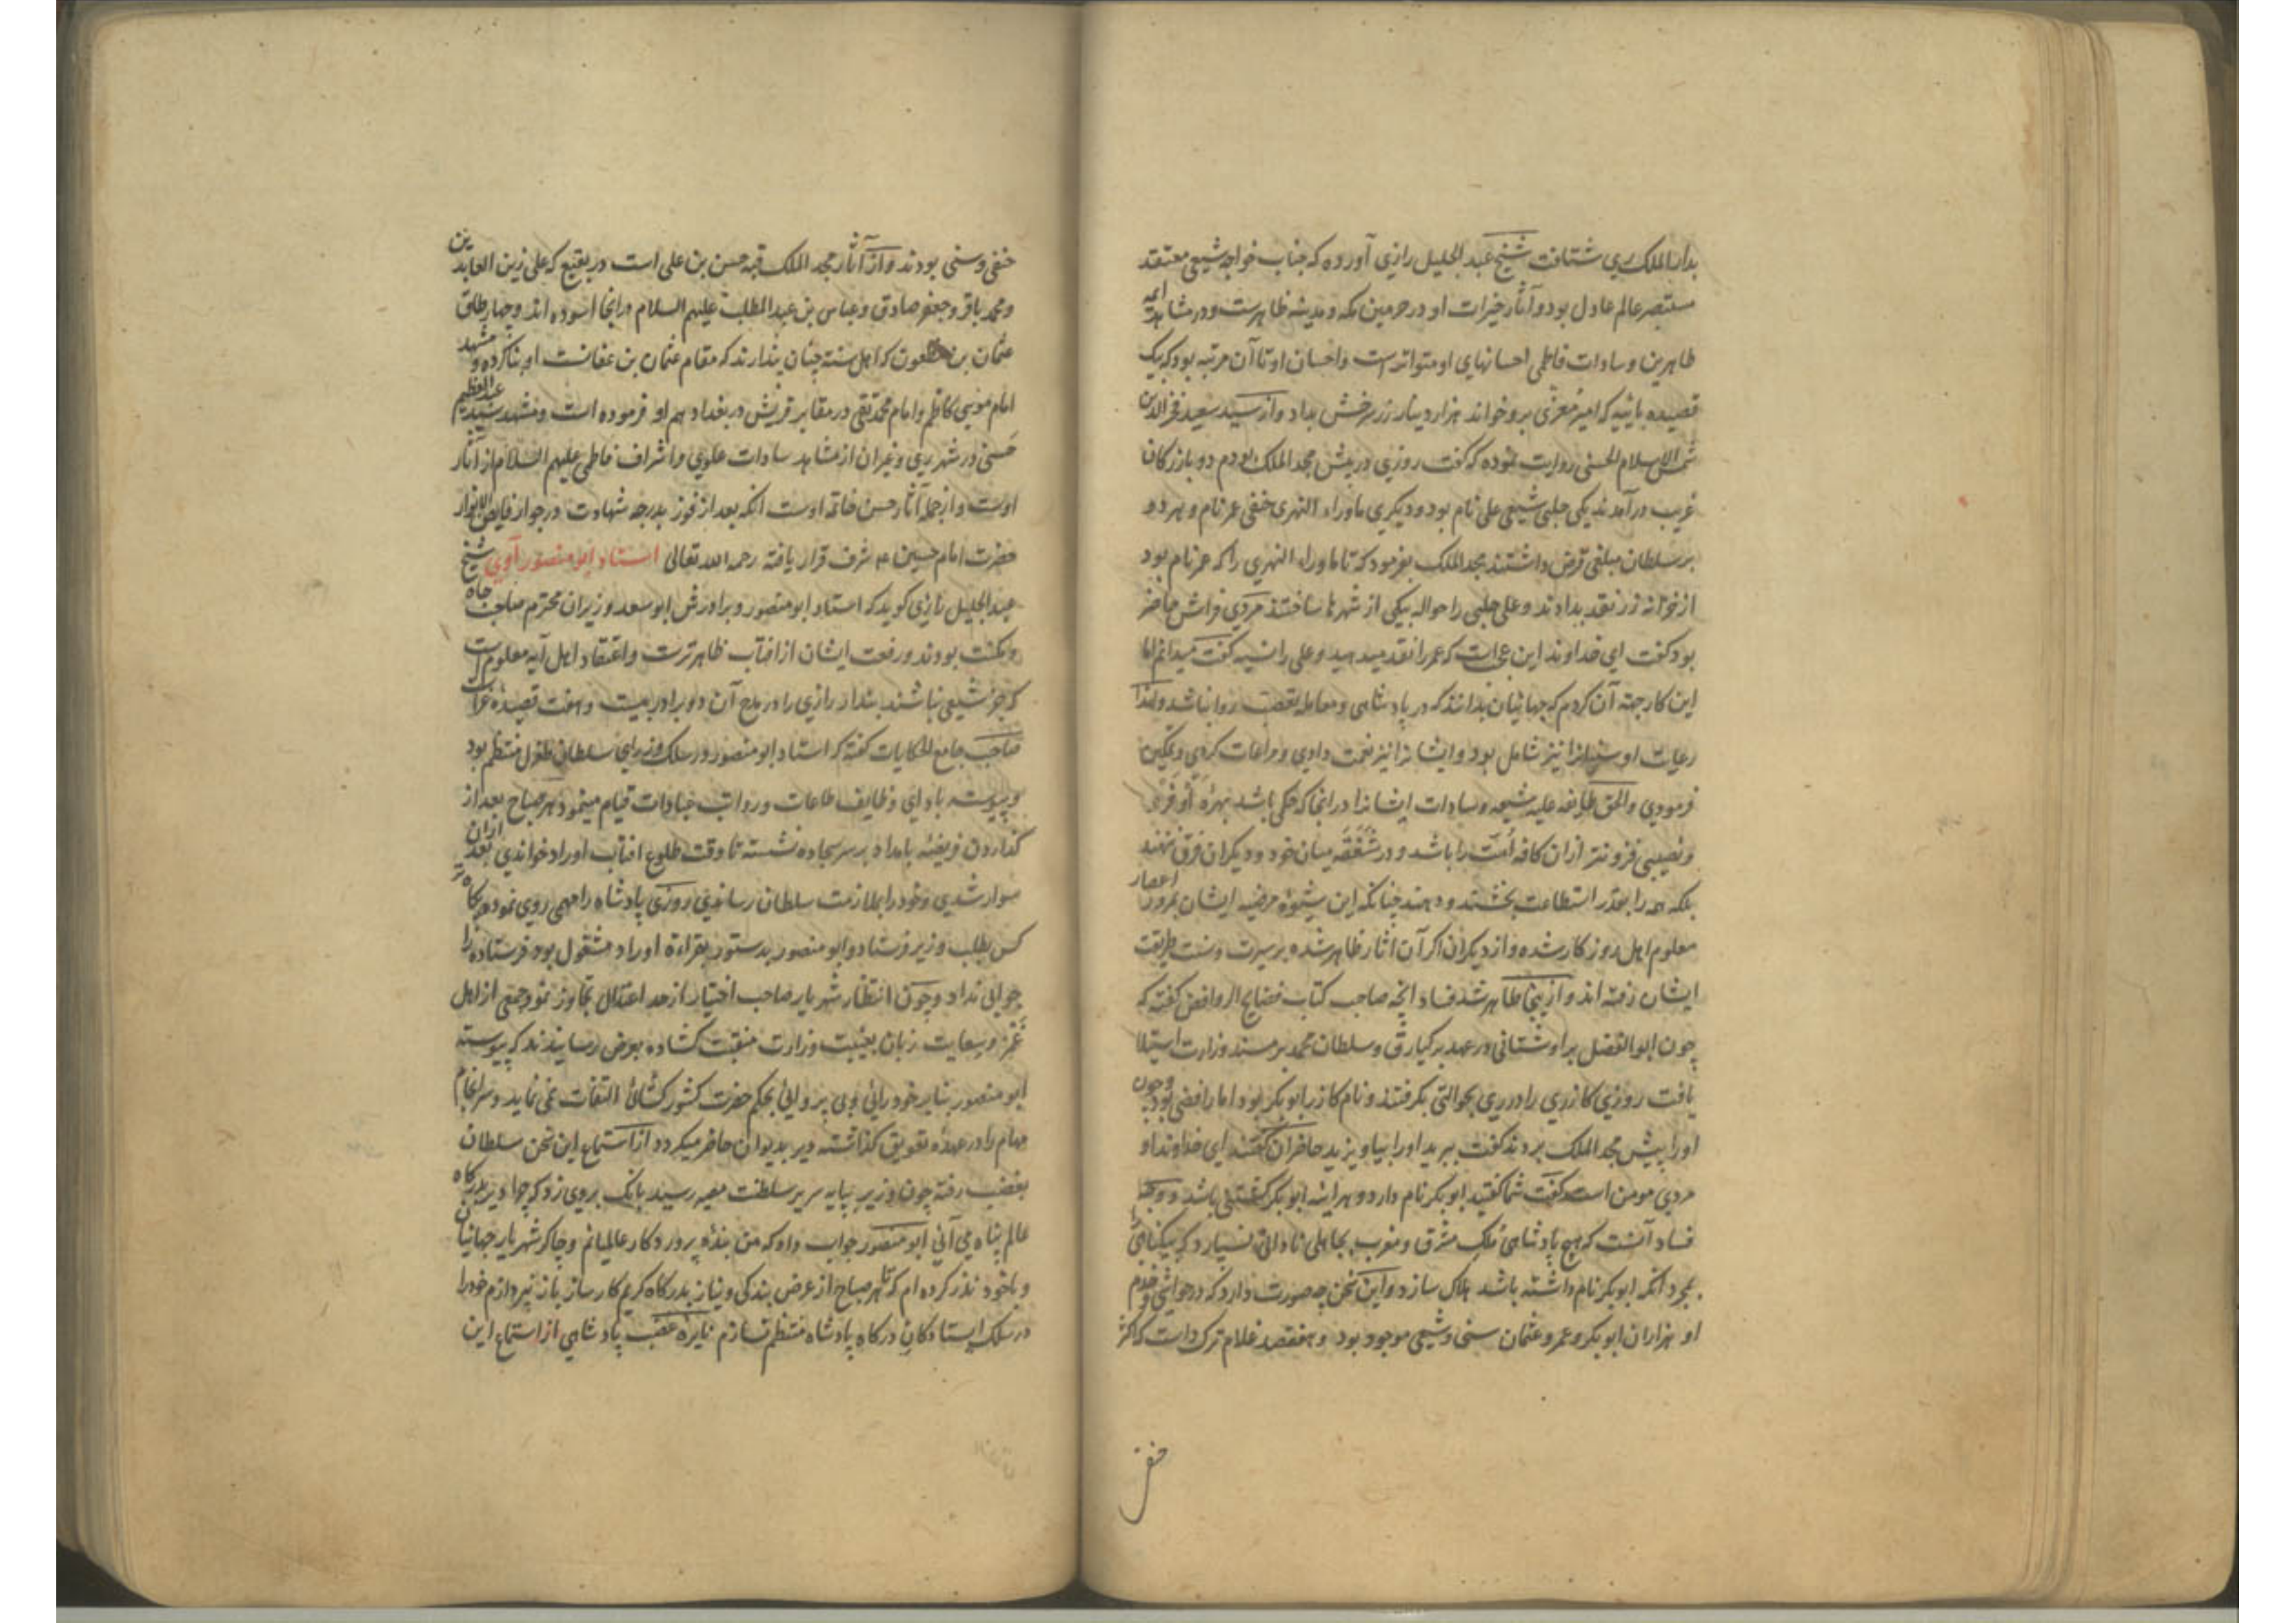 بدار الملک ری شتافت شیخ عبد الجلیل رازی آورده که جناب خواجه شیعی معتقد
مستبصر عالم عادل بود و آثار خیرات او در حرمین مکه و مدینه ظاهرست و در مشاهد ائمه
طاهرین و سادات فاطمی احسانهای او متواترست و احسان او تا آن مرتبه بود که بیک
قصیده بائیه که امیر معزی برو خواند هزار دینار زر سرخش بداد و از سید سعید فخر الدین
شمس الاسلام الحسنی روایت نموده که گفت روزی در پیش مجد الملک بودم دو بازرکان
غریب درآمدند یکی حلبی شیعی علی نام بود و دیکری ماوراء النهری حنفی عمر نام و بهر دو
بر سلطان مبلغی قرض داشتند مجد الملک بفرمود که تا ماوراء النهری را که عمر نام بود
از خزانه زر نقد بدادند و علی حلبی را حواله بیکی از شهرها ساختند مردی فراش حاضر
بود گفت ای خداوند این عجبست که عمر را نقد میدهید و علی را نسیه گفت میدانم اما
این کار جهته آن کردم که جهانیان بدانند که در پادشاهی و معامله تعصب روا نباشد و لهذا
رعایت او سنیانرا نیز شامل بود و ایشانرا نیز نعمت دادی و مراعات کردی و تمکین
فرمودی والحق طایفه علیه شیعه و سادات ایشانرا در آنجا که حکمی باشد بهره اوفری
و نصیبی فزونتر از آن کافه امت را باشد و در شفقه میان خود و دیکران فرق ننهند
بلکه همه را بقدر استطاعت بخشند و دهند چنانکه این شیوه مرضیه ایشان بمرور اعصار
معلوم اهل روزکار شده و از دیکران اکر آن اثار ظاهر شده بر سیرت و سنت طریقت
ایشان رفته اند و از اینجا ظاهر شد فساد آنچه صاحب کتاب فضایح الروافض کفته که
چون ابو الفضل براوستانی در عهد برکیارق و سلطان محمد بر مسند وزارت استیلا
یافت روزی کازری را در ری بحوالتی بکرفتند و نام کازر ابوبکر بود اما رافضی بود و چون
او را پیش مجد الملک بردند کفت ببرید او را بیاویزید حاضران کفتند ای خداوند او
مردی مومن است گفت شما کفتید ابوبکر نام دارد و هر آینه ابوبکر کشتنی باشد و وجه
فساد آنست که هیچ پادشاهی ملک مشرق و مغرب بجاهلی نادانی نسپارد که بیکناهی را
بمجرد آنکه ابوبکر نام داشته باشد هلاک سازد و این سخن چه صورت دارد که در حواشی و خدم
او هزاران ابوبکر و عمر و عثمان سنی و شیعی موجود بود و هفتصد غلام ترک داشت که اکثر
حنفی
حنفی و سنی بودند و از آثار مجد الملک قبه حسن بن علی است در بقیع که علی زین العابدین
و محمد باقر و جعفر صادق و عباس بن عبد المطلب علیهم السلام در آنجا آسوده اند و چهار طاق
عثمان بن مظعون که اهل سنه چنان پندارند که مقام عثمان بن عفانست او بنا کرده و مشهد
امام موسی کاظم و امام محمد تقی در مقابر قریش در بغداد هم او فرموده است و مشهد سید عبد العظیم
حسنی در شهر ری و غیر آن از مشاهد سادات علوی و اشراف فاطمی علیهم السلام از آثار
اوست و از جمله آثار حسن خاتمه اوست انکه بعد از فوز بدرجه شهادت در جوار فایض الانوار
حضرت امام حسین ع شرف قرار یافته رحمه الله تعالی استاد ابو منصور آبی شیخ
عبد الجلیل رازی کوید که استاد ابو منصور و برادرش ابو سعد وزیران محترم صاحب جاه
و مکنت بودند و رفعت ایشان از افتاب ظاهرترست و اعتقاد اهل آبه معلوم است
که جز شیعی نباشند بندار رازی را در مدح آن دو برادر بیست و هفت قصیده غراست
صاحب جامع الحکایات گفته که استاد ابو منصور در سلک وزرای سلطان طغرل منتظم بود
و پیوسته بادای وظایف طاعات و رواتب عبادات قیام مینمود هر صباح بعد از
کذاردن فریضه بامداد بر سر سجاده نشسته تا وقت طلوع افتاب اوراد خواندی بعد از آن
سوار شدی و خود را بملازمت سلطان رسانیدی روزی پادشاه را مهمی روی نمود
کس بطلب وزیر فرستاد و ابو منصور بدستور بقراءة اوراد مشغول بود فرستاده را
جوابی نداد و چون انتظار شهریار صاحب اختیار از حد اعتدال تجاوز نمود جمعی از اهل
غمز و سعایت زبان بغیبت وزارت منقبت کشاده بعرض رسانیدند که پیوسته
ابو منصور بنابر خود رائی و بی پروائی بحکم حضرت کشور کشائی التفات نمی نماید و سرانجام
مهام را در عهده تعویق کذاشته دیر بدیوان حاضر میکردد از استماع این سخن سلطان
بغضب رفته چون وزیر بپایه سریر سلطنت مصیر رسید بانک بر وی زد که چرا دیر بدرکاه
عالم پناه می آئی ابو منصور جواب داد که من بنده پروردکار عالمیانم و چاکر شهریار جهانیان
و باخود نذر کرده ام که تا هر صباح از عرض بندکی و نیاز بدرکاه کریم کارساز باز نپردازم خود را
در سلک ایستادکان درکاه پادشاه منتظم نسازم نایره غضب پادشاهی از استماع این